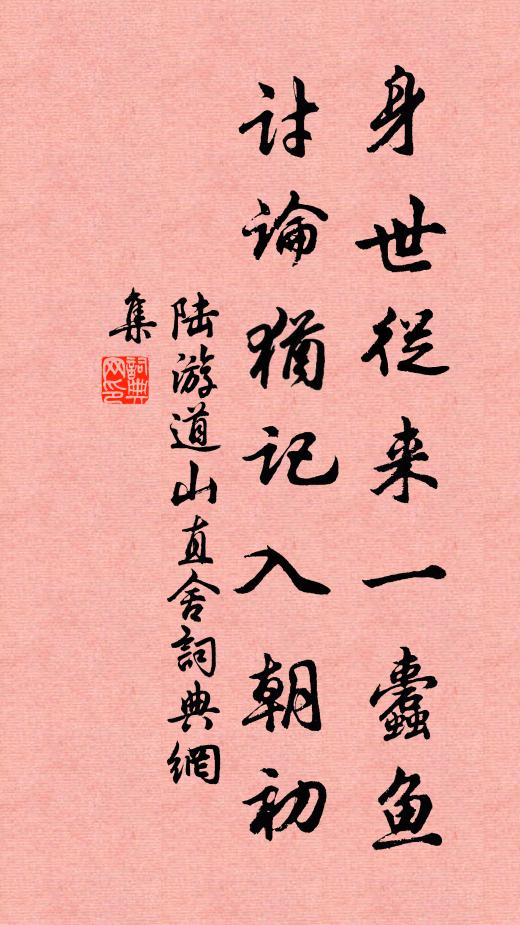 身世從来一蠹鱼
討論猶记入朝初
陆游道山直舍詞典網
集
詞典网印